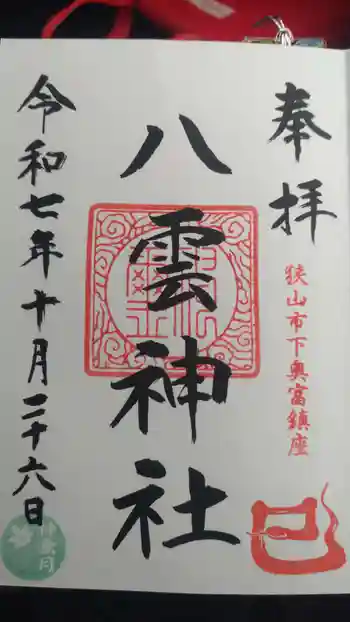 奉拝
狭山市下奥富鎮座
八雲神社
令和七年十月二十六日